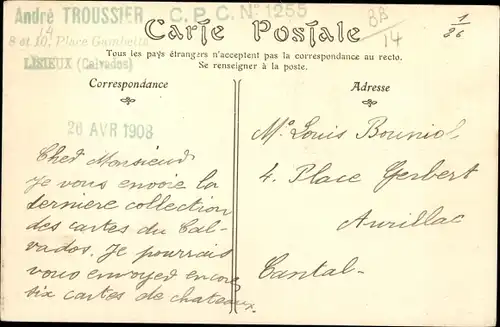 André TROUSSIER
C.P.C. N° 1255
8 et 10, Place Gambetta
LISIEUX (Calvados)
BB
14
1/26
14
Carte Postale
Tous les pays étrangers n'acceptent pas la correspondance au recto.
Se renseigner à la poste.
Correspondance
26 AVR 1908
Cher Monsieur
Je vous envoie la
dernière collection
des cartes du Cal-
vados. Je pourrais
vous envoyer encore
six cartes de chateaux.
Adresse
Mr Louis Bouniol
4. Place Gerbert
Aurillac
Cantal-